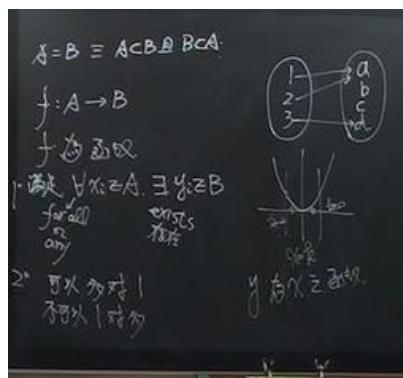 A=B ≡ A⊂B 且 B⊂A.
f: A → B
f 為函數
1° 滿足 ∀ xi ∈ A. ∃ yi ∈ B
for all
or
any
exists
存在
2° 可以多對1
不可以1對多
1
2
3
a
b
c
d
y 為 x 之函數.